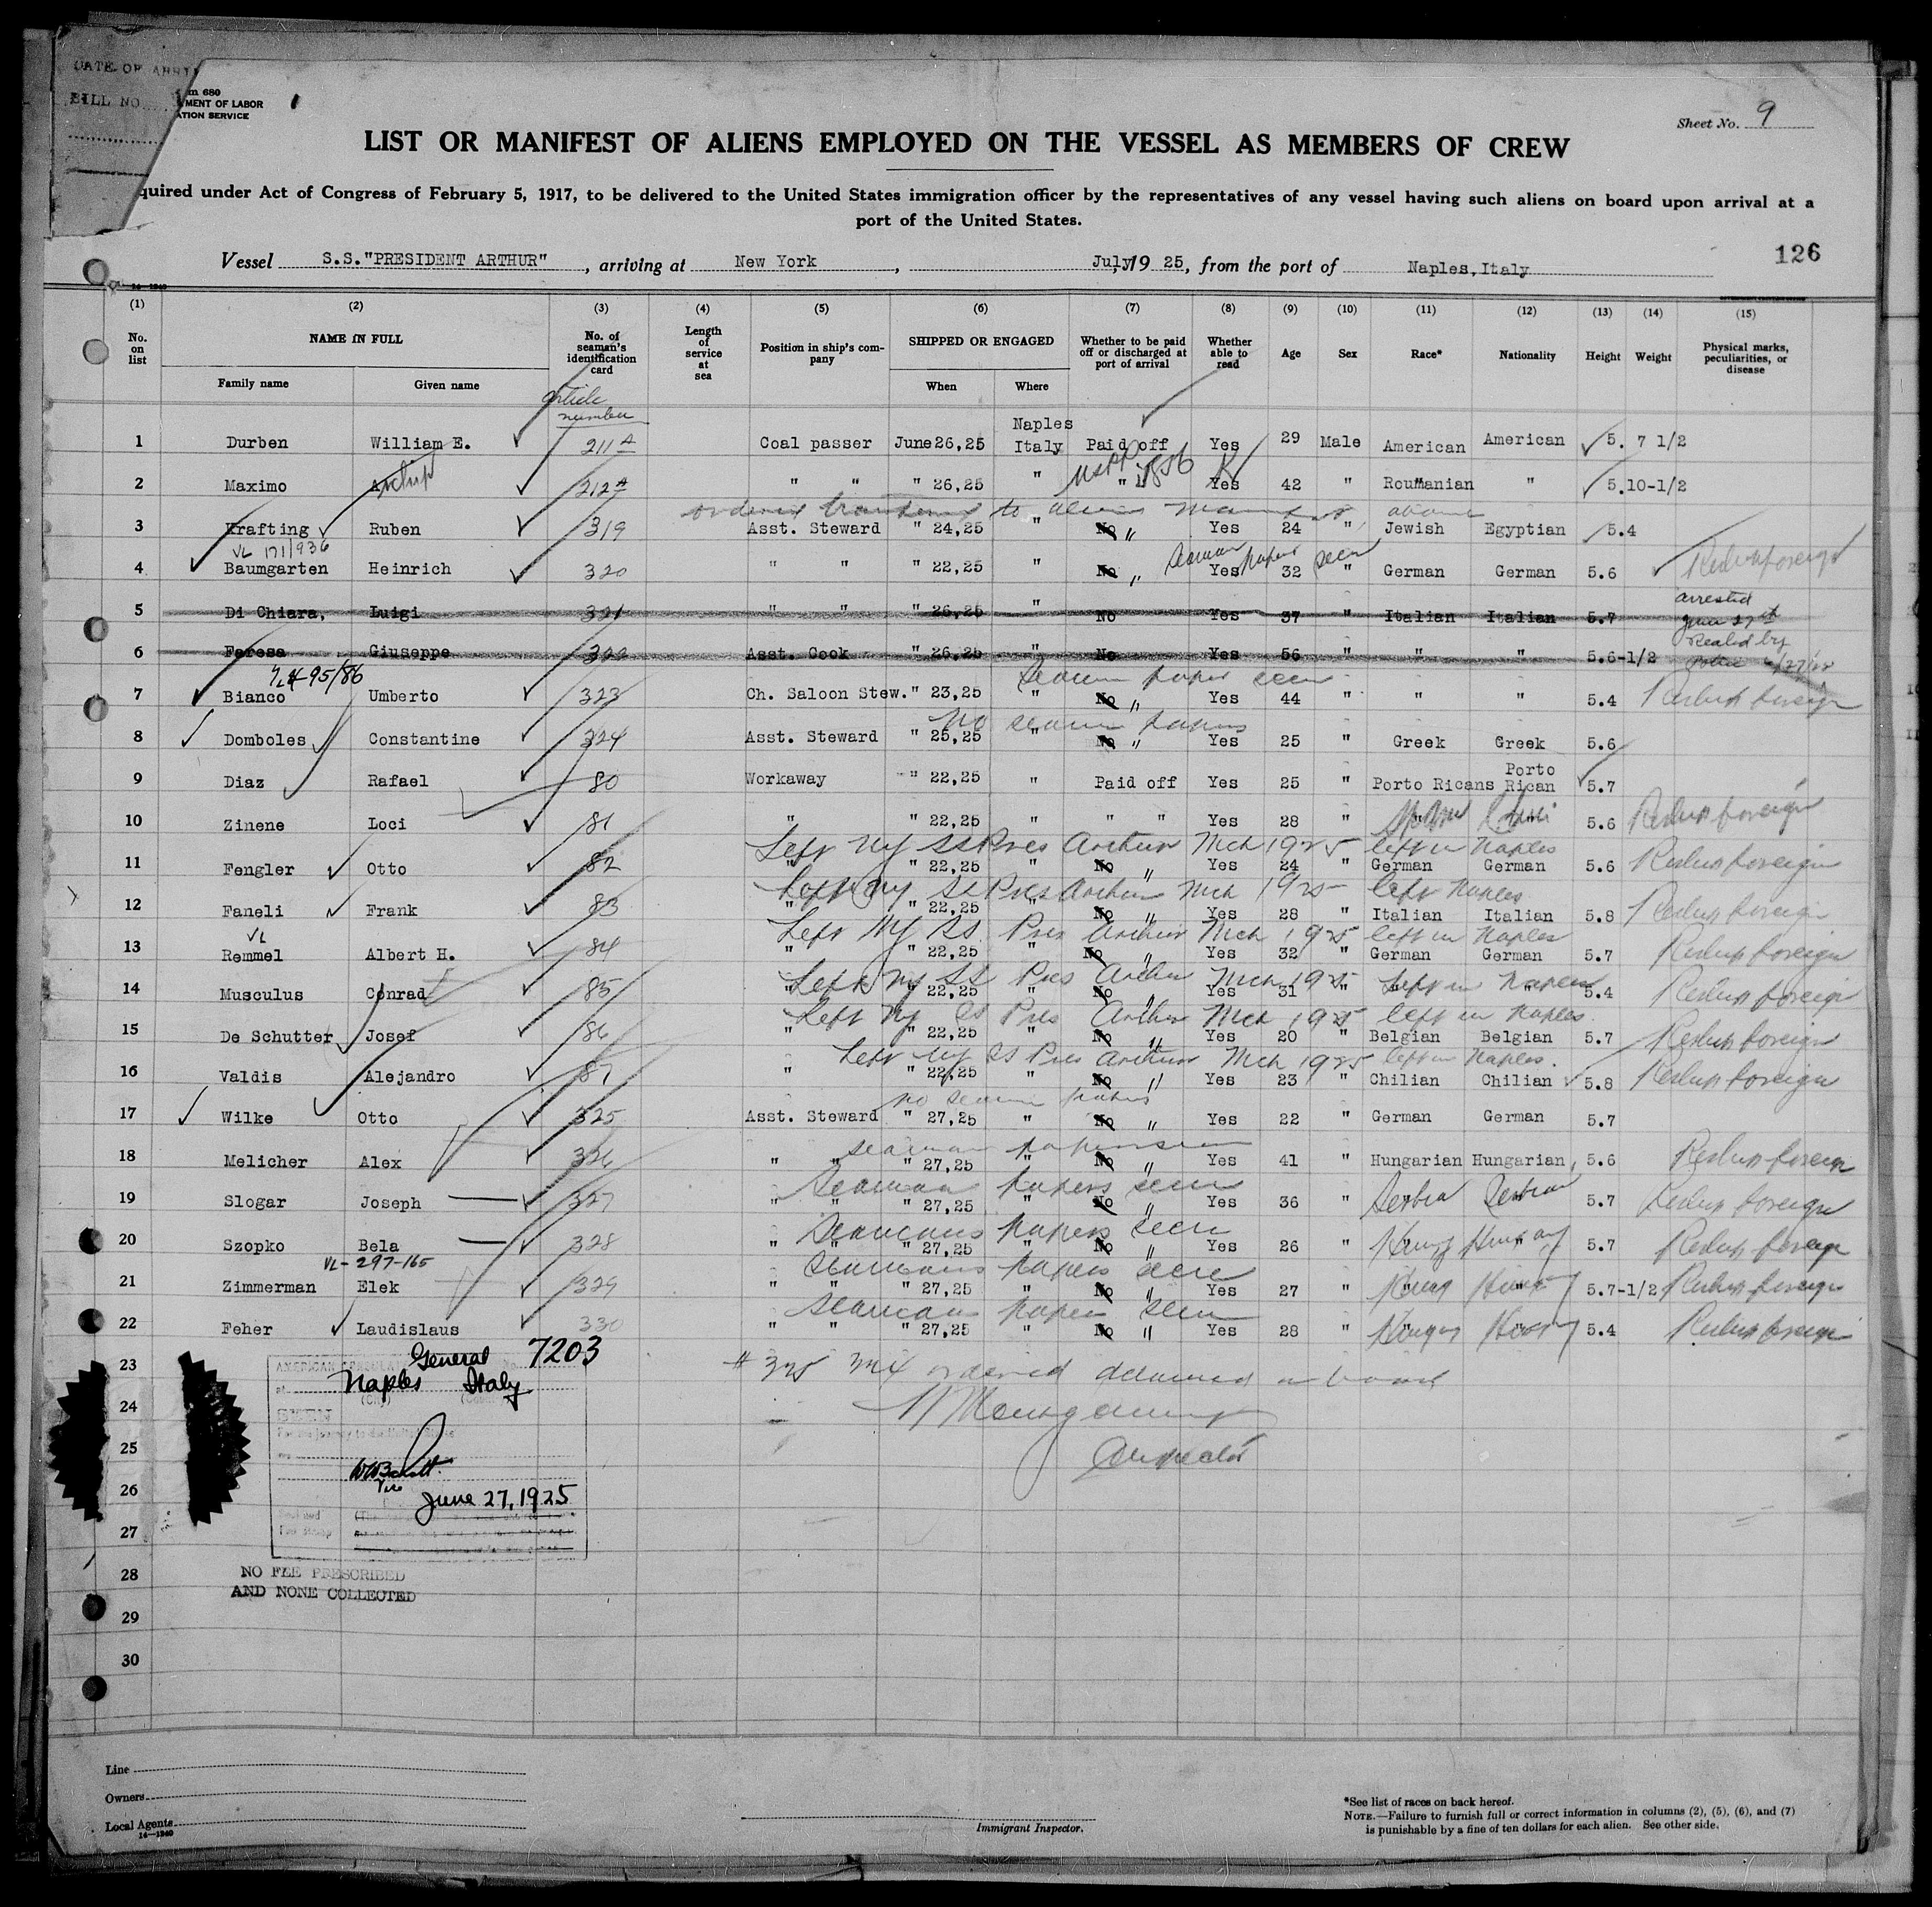 DATE OF ARRI
BILL NO.
m 680
MENT OF LABOR
ATION SERVICE
Sheet No. 9
LIST OR MANIFEST OF ALIENS EMPLOYED ON THE VESSEL AS MEMBERS OF CREW
quired under Act of Congress of February 5, 1917, to be delivered to the United States immigration officer by the representatives of any vessel having such aliens on board upon arrival at a
port of the United States.
126
Vessel S.S."PRESIDENT ARTHUR" , arriving at New York , July 19 25, from the port of Naples, Italy
(1) (2) (3) (4) (5) (6) (7) (8) (9) (10) (11) (12) (13) (14) (15)
No. on list NAME IN FULL No. of seaman's identification card Length of service at sea Position in ship's company SHIPPED OR ENGAGED Whether to be paid off or discharged at port of arrival Whether able to read Age Sex Race* Nationality Height Weight Physical marks, peculiarities, or disease
Family name Given name When Where
article number
1 Durben William E. 211 A Coal passer June 26,25 Naples Italy Paid off Yes 29 Male American American 5. 7 1/2
2 Maximo Archip 212 A " " " 26,25 " " Yes 42 " Roumanian " 5.10-1/2
ordered to alien above
3 Krafting Ruben 319 Asst. Steward " 24,25 " No " Yes 24 " Jewish Egyptian 5.4
VL 171/936 Seaman papers seen
4 Baumgarten Heinrich 320 " " " 22,25 " No " Yes 32 " German German 5.6 Reship foreign
5 Di Chiara, Luigi 321 " " " 26,25 " No Yes 37 " Italian Italian 5.7 arrested June 27th
6 Feresa Giuseppe 322 Asst. Cook " 26,25 " No Yes 56 " " " 5.6-1/2 by Police 6/27/25
95/86 Seaman paper seen
7 Bianco Umberto 323 Ch. Saloon Stew. " 23,25 " No " Yes 44 " " " 5.4 Reship foreign
No seaman papers
8 Domboles Constantine 324 Asst. Steward " 25,25 " No " Yes 25 " Greek Greek 5.6
9 Diaz Rafael 80 Workaway " 22,25 " Paid off Yes 25 " Porto Ricans Porto Rican 5.7
10 Zinene Loci 81 " " 22,25 " " " Yes 28 " 5.6 Reship foreign
Left NY SS Pres Arthur Mch 1925 left in Naples
11 Fengler Otto 82 " " 22,25 " No " Yes 24 " German German 5.6 Reship foreign
Left NY SS Pres Arthur Mch 1925 left Naples
12 Faneli Frank 83 " " 22,25 " No " Yes 28 " Italian Italian 5.8 Reship foreign
VL Left NY SS Pres Arthur Mch 1925 left in Naples
13 Remmel Albert H. 84 " " 22,25 " No " Yes 32 " German German 5.7 Reship foreign
Left NY SS Pres Arthur Mch 1925 left in Naples
14 Musculus Conrad 85 " " 22,25 " No " Yes 31 " " " 5.4 Reship foreign
Left NY SS Pres Arthur Mch 1925 left in Naples.
15 De Schutter Josef 86 " " 22,25 " No " Yes 20 " Belgian Belgian 5.7 Reship foreign
Left NY SS Pres Arthur Mch 1925 left in Naples.
16 Valdis Alejandro 87 " " 22,25 " No " Yes 23 " Chilian Chilian 5.8 Reship foreign
No seaman papers
17 Wilke Otto 325 Asst. Steward " 27,25 " No " Yes 22 " German German 5.7
seaman papers seen
18 Melicher Alex 326 " " " 27,25 " No " Yes 41 " Hungarian Hungarian, 5.6 Reship foreign
Seaman papers seen
19 Slogar Joseph 327 " " " 27,25 " No " Yes 36 " Serbia Serbian 5.7 Reship foreign
Seamans papers seen
20 Szopko Bela 328 " " " 27,25 " No " Yes 26 " Hung Hungary 5.7 Reship foreign
VL-297-165 Seamans papers seen
21 Zimmerman Elek 329 " " " 27,25 " No " Yes 27 " Hung Hung 5.7-1/2 Reship foreign
Seamans papers seen
22 Feher Laudislaus 330 " " " 27,25 " No " Yes 28 " Hungary Hung 5.4 Reship foreign
23 # 325 ordered detained on board
24 Montgomery
25 Inspector
26
27
28
29
30
AMERICAN CONSULATE General No. 7203
at Naples Italy
(City) (Country)
SEEN
For the journey to the United States
Vice
June 27, 1925
NO FEE PRESCRIBED
AND NONE COLLECTED
Line
Owners
Local Agents
14-1240
Immigrant Inspector.
*See list of races on back hereof.
NOTE.—Failure to furnish full or correct information in columns (2), (5), (6), and (7)
is punishable by a fine of ten dollars for each alien. See other side.